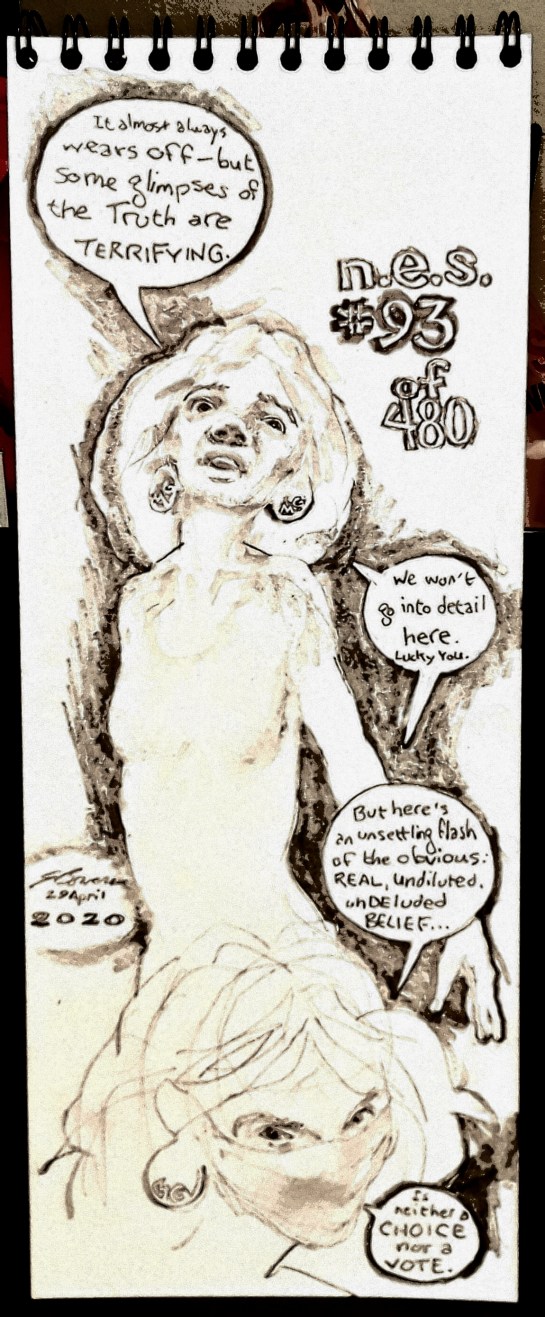 It almost always
wears off—but
some glimpses of
the Truth are
TERRIFYING.
n.e.s.
#93
of
480
We won't
go into detail
here.
Lucky You.
But here's
an unsettling flash
of the obvious:
REAL, undiluted,
unDEluded
BELIEF...
29 April
2020
Is
neither a
CHOICE
nor a
VOTE.